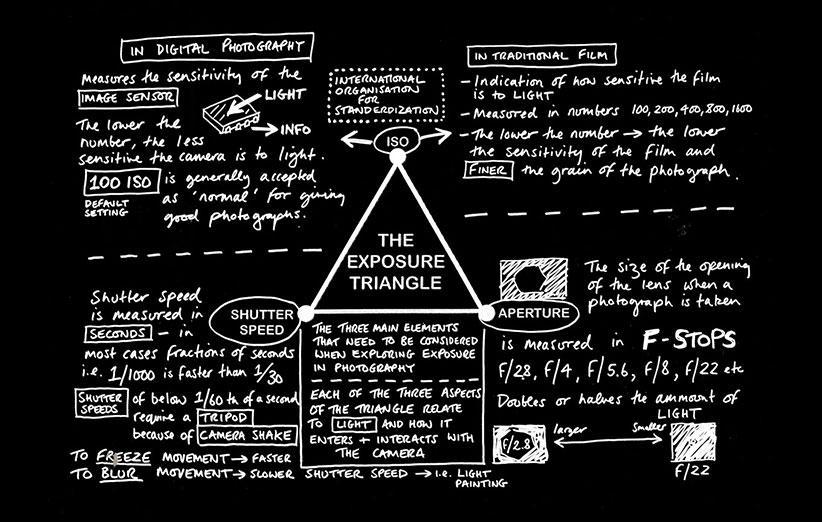 IN DIGITAL PHOTOGRAPHY
Measures the sensitivity of the
IMAGE SENSOR
LIGHT
INFO
The lower the
number, the less
sensitive the camera is to light.
100 ISO is generally accepted
DEFAULT
SETTING
as 'normal' for giving
good photographs.
INTERNATIONAL
ORGANISATION
FOR
STANDERDIZATION
ISO
IN TRADITIONAL FILM
- Indication of how sensitive the film
is to LIGHT
- Measured in numbers 100, 200, 400, 800, 1600
- The lower the number → the lower
the sensitivity of the film and
FINER the grain of the photograph.
THE
EXPOSURE
TRIANGLE
SHUTTER
SPEED
APERTURE
Shutter speed
is measured in
SECONDS - in
most cases fractions of seconds
i.e. 1/1000 is faster than 1/30
SHUTTER
SPEEDS
of below 1/60th of a second
require a TRIPOD
because of CAMERA SHAKE
TO FREEZE MOVEMENT → FASTER
TO BLUR MOVEMENT → SLOWER SHUTTER SPEED → i.e. LIGHT
PAINTING
THE THREE MAIN ELEMENTS
THAT NEED TO BE CONSIDERED
WHEN EXPLORING EXPOSURE
IN PHOTOGRAPHY
EACH OF THE THREE ASPECTS
OF THE TRIANGLE RELATE
TO LIGHT AND HOW IT
ENTERS + INTERACTS WITH
THE CAMERA
The size of the opening
of the lens when a
photograph is taken
is measured in F-STOPS
F/2.8, F/4, F/5.6, F/8, F/22 etc
Doubles or halves the ammount of
LIGHT
larger
smaller
F/2.8
F/22